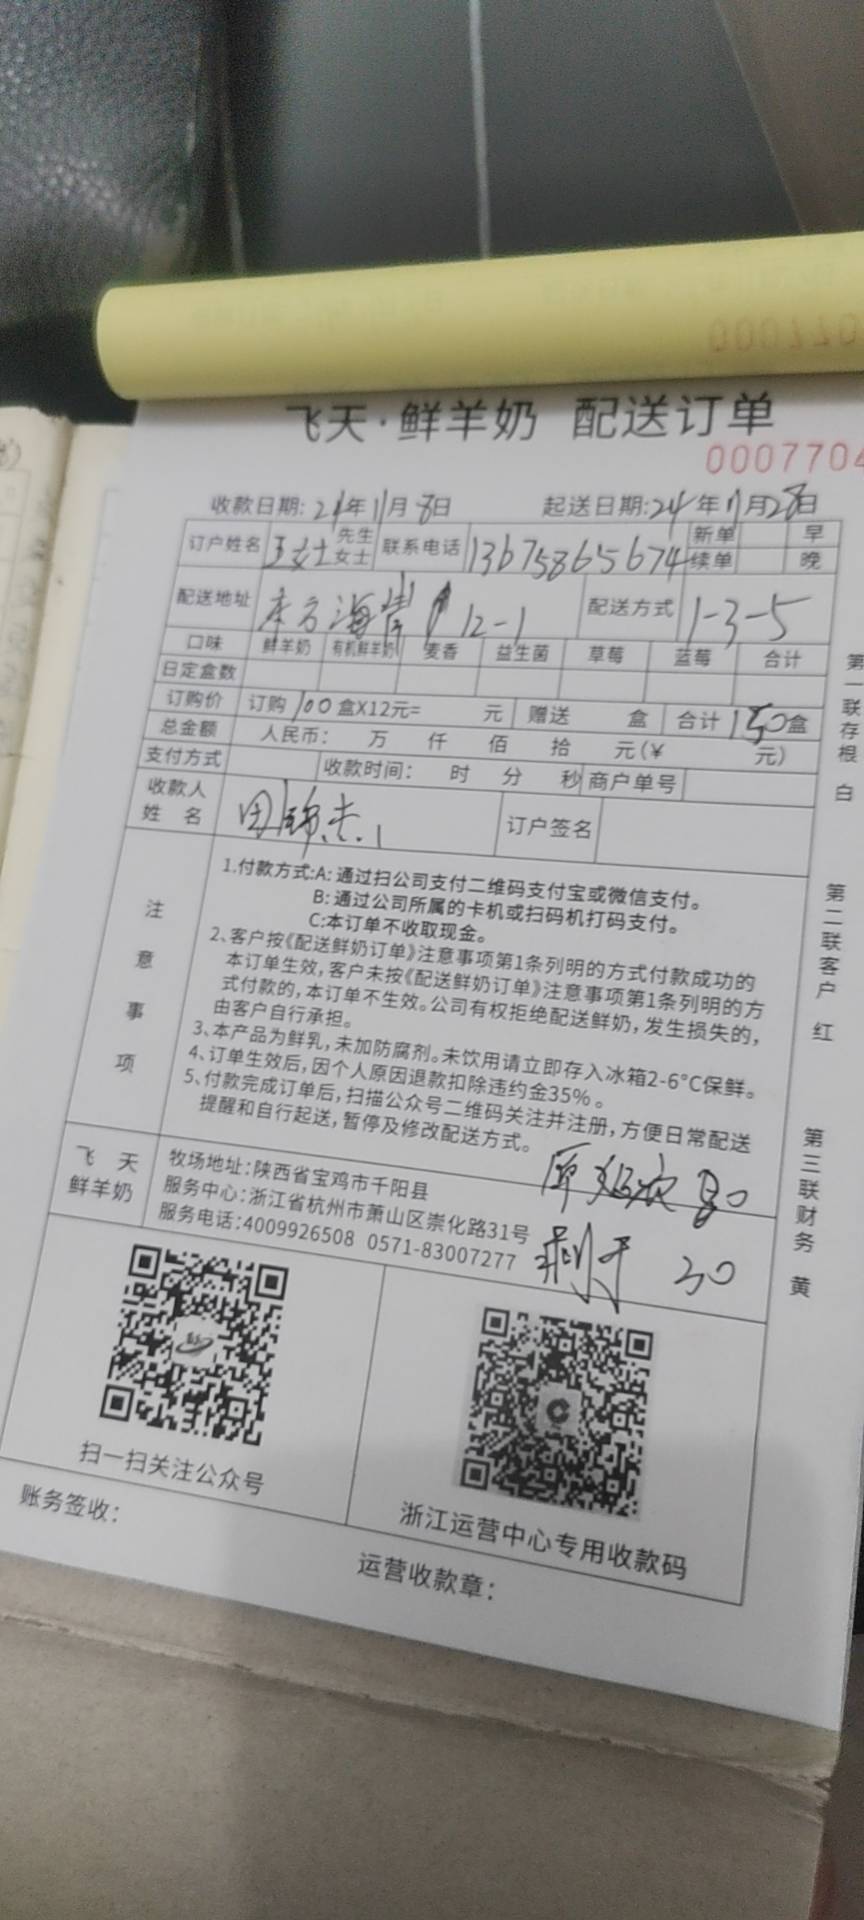 飞天·鲜羊奶 配送订单
0007704
收款日期: 24年11月8日 起送日期:24年11月28日
订户姓名 王女士 先生 女士 联系电话 13675865674 新单 早
续单 晚
配送地址 东方海岸 12-1 配送方式 1-3-5
口味 鲜羊奶 有机鲜羊奶 麦香 益生菌 草莓 蓝莓 合计
日定盒数
订购价 订购100盒X12元= 元 赠送 盒 合计150盒
总金额 人民币: 万 仟 佰 拾 元(¥ 元)
支付方式 收款时间: 时 分 秒 商户单号
收款人
姓 名 订户签名
注意事项
1.付款方式:A: 通过扫公司支付二维码支付宝或微信支付。
B: 通过公司所属的卡机或扫码机打码支付。
C:本订单不收取现金。
2、客户按《配送鲜奶订单》注意事项第1条列明的方式付款成功的
本订单生效,客户未按《配送鲜奶订单》注意事项第1条列明的方
式付款的,本订单不生效。公司有权拒绝配送鲜奶,发生损失的,
由客户自行承担。
3、本产品为鲜乳,未加防腐剂。未饮用请立即存入冰箱2-6°C保鲜。
4、订单生效后,因个人原因退款扣除违约金35%。
5、付款完成订单后,扫描公众号二维码关注并注册,方便日常配送
提醒和自行起送,暂停及修改配送方式。
飞 天
鲜羊奶
牧场地址:陕西省宝鸡市千阳县
服务中心:浙江省杭州市萧山区崇化路31号
服务电话:4009926508 0571-83007277
30
扫一扫关注公众号
浙江运营中心专用收款码
账务签收:
运营收款章:
第一联存根 白
第二联客户 红
第三联财务 黄